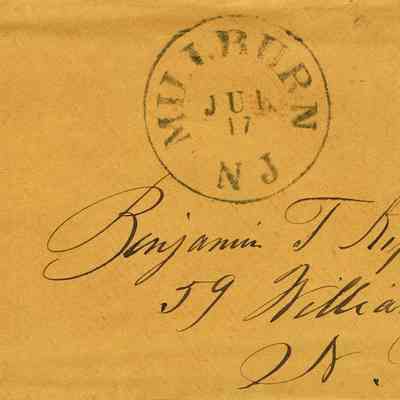 MILLBURN
JUL
17
N J
Benjamin T
59 Willia
N.